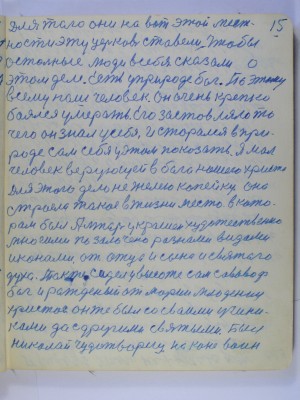 15
Для того они на вот этой мест-
ности эту церковь ставели. Чтобы
остольные люди в себя сказали о
этом деле. Есть у природе бог. По этому
всему наш человек. Он очень крепко
боялся умерать. Его заставляло то
чего он знал у себя. И старался в при-
роде сам себя у этом показать. Я мол
человек верующей в бога нашего христа
Для этого дела не жалею копейку она
строела такое в жизни место. В кото-
рам был Алтарь украшон художественно
многими позолочено разными видами
иконами от отца и сина и святого
духа. сидел у высоте сам саваоф
бог и рожденый от марии младенец
христос он же был со своими учини-
ками да с другими святыми. Был
николай чудотворец на коне воин